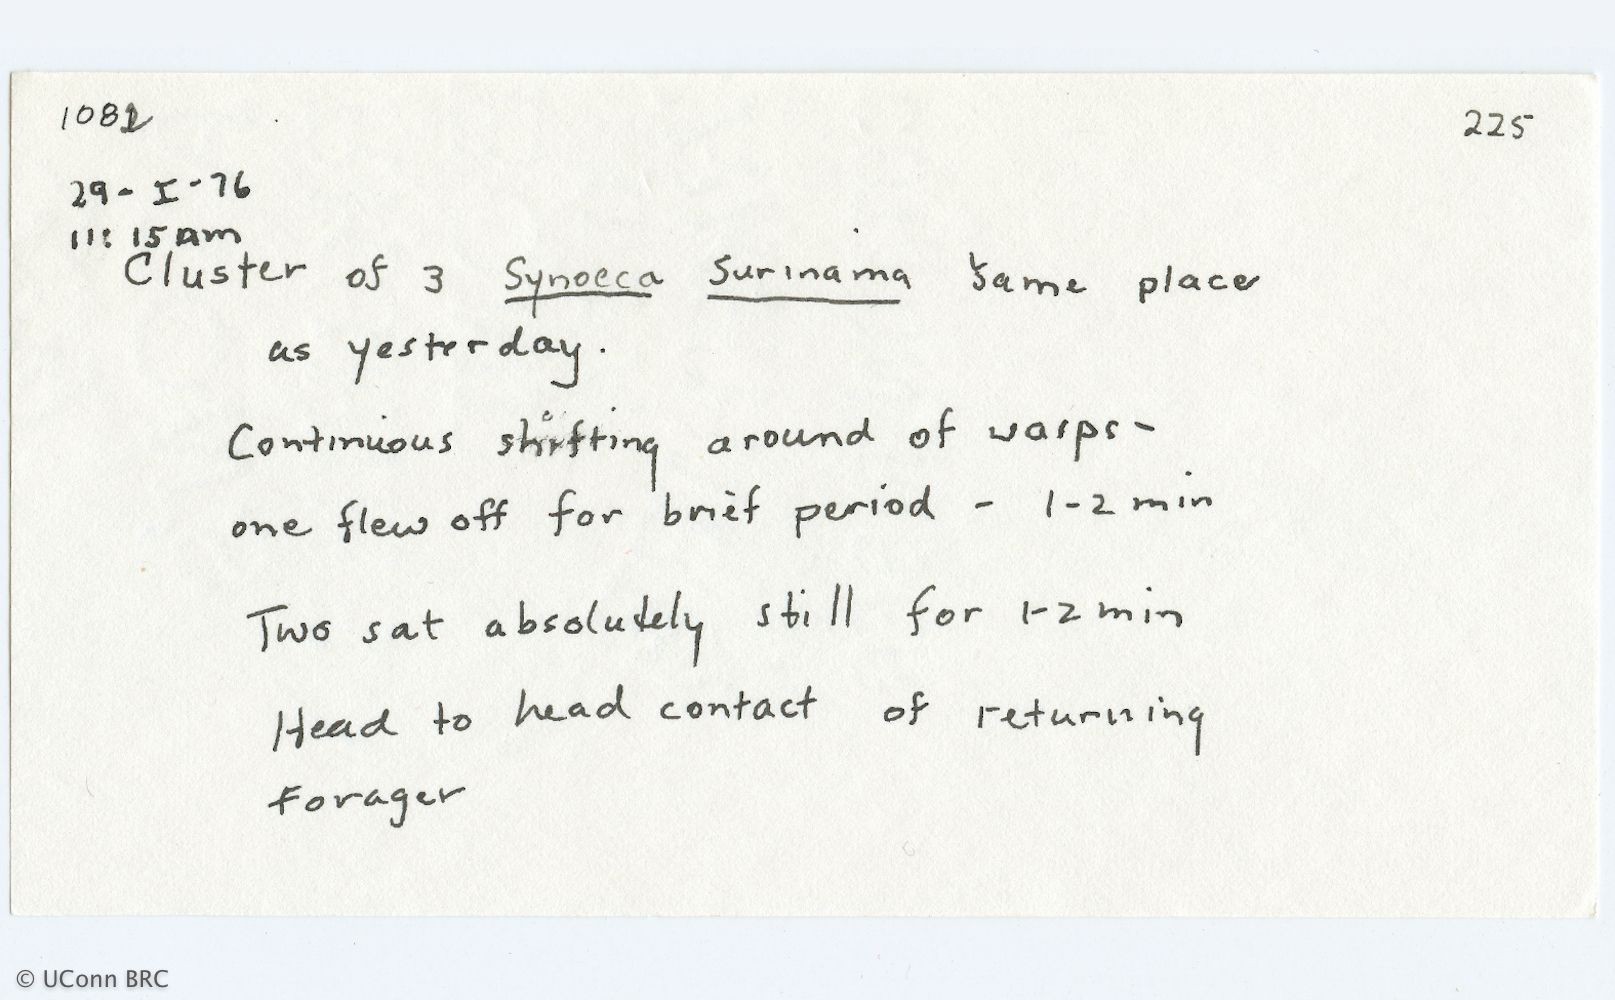 1081
225
29-I-76
11:15 am
Cluster of 3 Synoeca Surinama Same place
as yesterday.
Continuous shifting around of wasps-
one flew off for brief period - 1-2 min
Two sat absolutely still for 1-2 min
Head to head contact of returning
forager
© UConn BRC